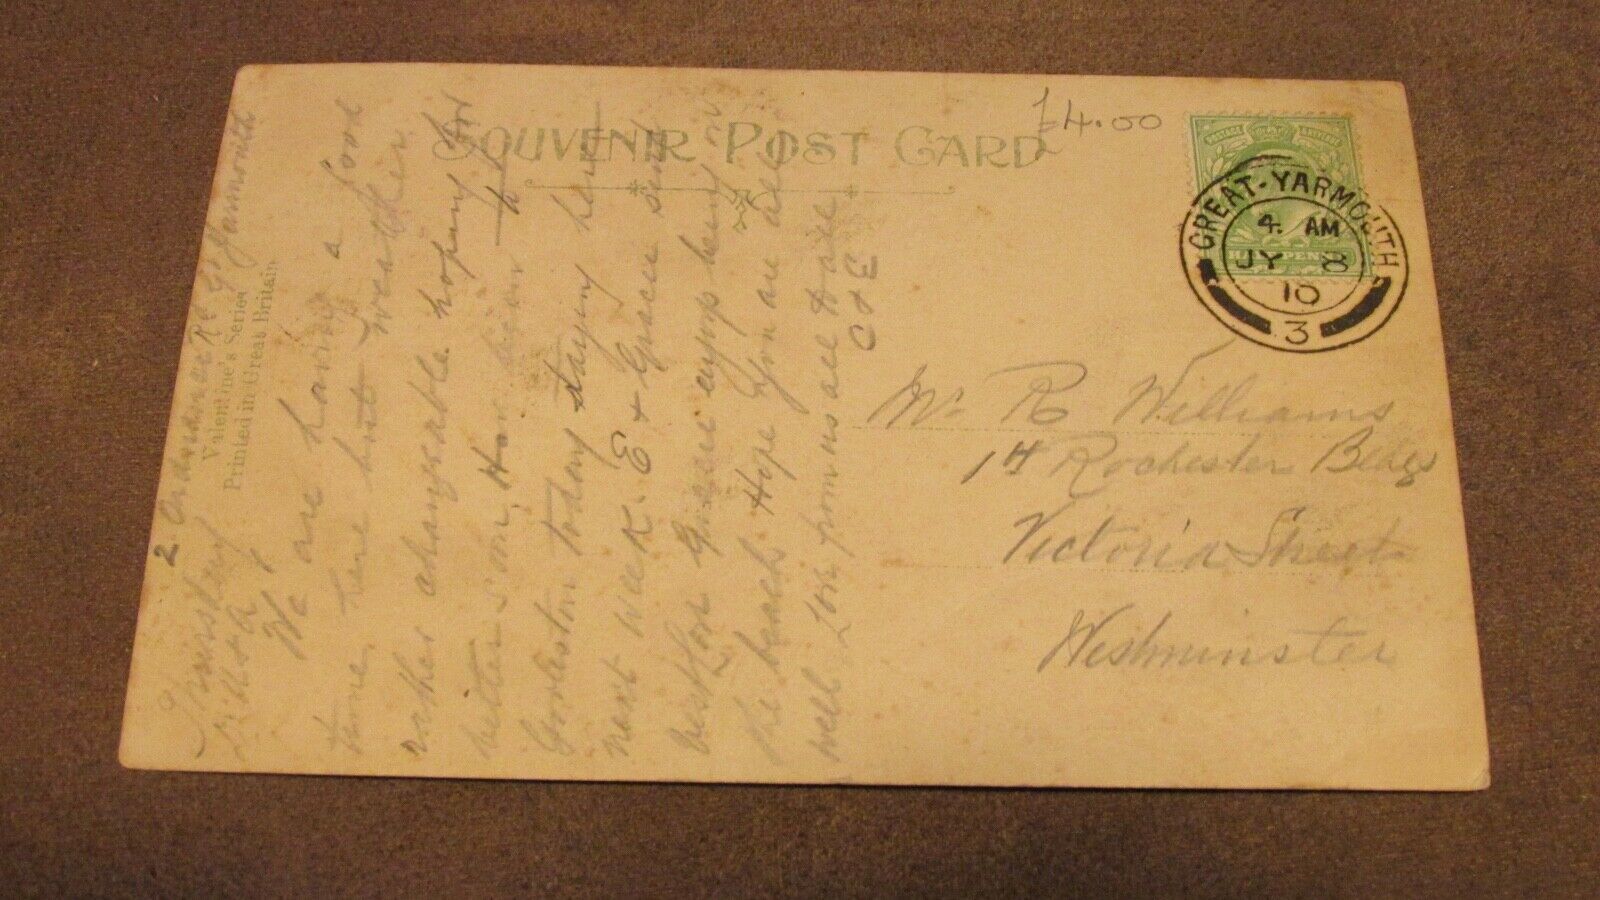 SOUVENIR POST CARD
£4.00
GREAT-YARMOUTH
4. AM
JY 8
10
3
POSTAGE REVENUE
HALFPENNY
Mr R Williams
14 Rochester Bldgs
Victoria Street
Westminster
Valentine's Series
Printed in Great Britain
2 Ordnance Rd Gt Yarmouth
Thursday
We are having a good
time here but weather
rather changeable hoping for
better soon
Gorleston today staying here
next week. E & Grace sent
best love Grace enjoys being on
the beach Hope you are all
well Love from us all to all
C & E